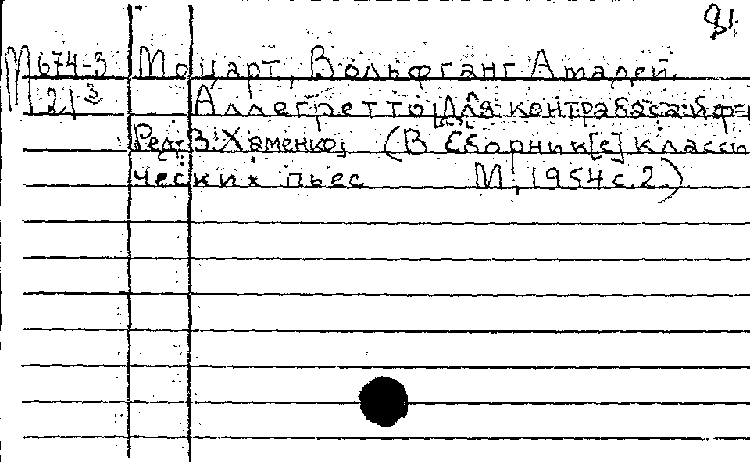 81
М674-3 Моцарт, Вольфганг Амадей.
121³ Аллегретто для контрабаса и ф-
Ред. В. Хаменко, (В Сборник[е] класси
ческих пьес М, 1954 с. 2.)